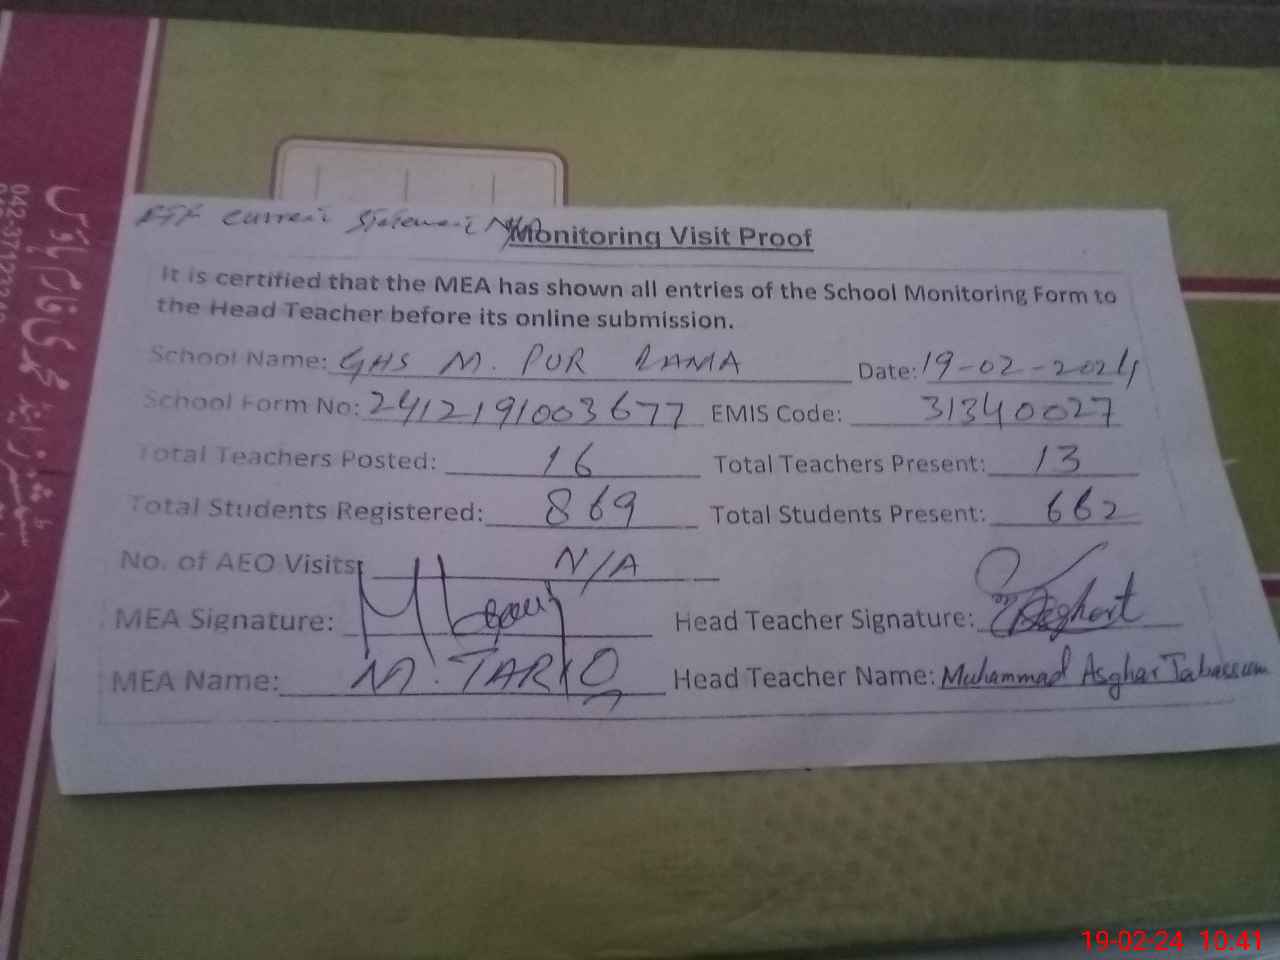 current statement N/A
Monitoring Visit Proof
It is certified that the MEA has shown all entries of the School Monitoring Form to
the Head Teacher before its online submission.
School Name: GHS M. PUR LAMA Date: 19-02-2024
School Form No: 2412191003677 EMIS Code: 31340027
Total Teachers Posted: 16 Total Teachers Present: 13
Total Students Registered: 869 Total Students Present: 662
No. of AEO Visits: N/A
MEA Signature: Head Teacher Signature:
MEA Name: M. TARIQ Head Teacher Name: Muhammad Asghar Tabassum
19-02-24 10:41